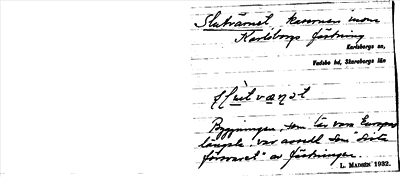 Slutvärnet, kasernen inom
Karlsborgs fästning
Karlsborgs sn,
Vadsbo hd, Skaraborgs län
Byggningen, som lär vara Europas
längsta, var avsedd som "Sista
försvaret" av fästningen.
L. MADSÉN 1932.